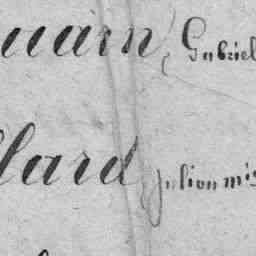 uain, Gabriel
llard, julion mis